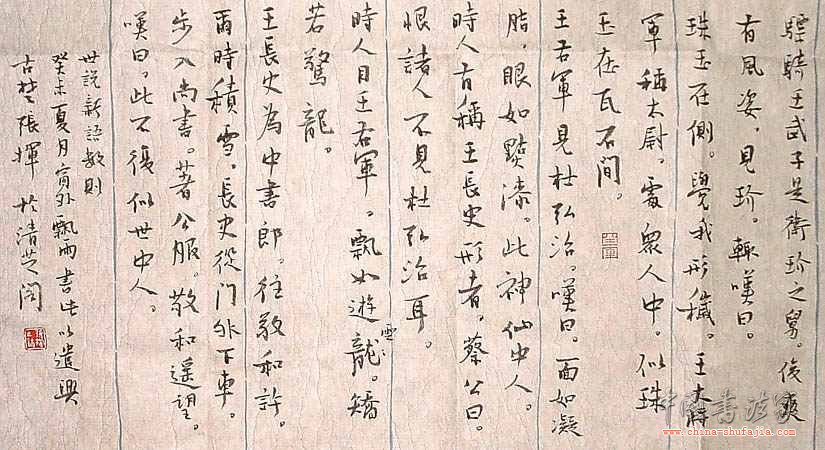 驃騎王武子是衛玠之舅。俊爽
有風姿，見玠。輒嘆曰。
珠玉在側。覺我形穢。王大將
軍稱太尉。處眾人中。似珠
玉在瓦石間。
王右軍見杜弘治。嘆曰。面如凝
脂，眼如點漆。此神仙中人。
時人有稱王長史形者。蔡公曰。
恨諸人不見杜弘治耳。
時人目王右軍。飄如遊龍。矯
雲
若驚龍。
王長史為中書郎。往敬和許。
爾時積雪。長史從門外下車。
步入尚書。著公服。敬和遙望。
嘆曰。此不復似世中人。
世説新語數則
癸未夏月窗外飄雨書此以遣興
張揮 於清芝閣
中國書法家
www.china-shufajia.com